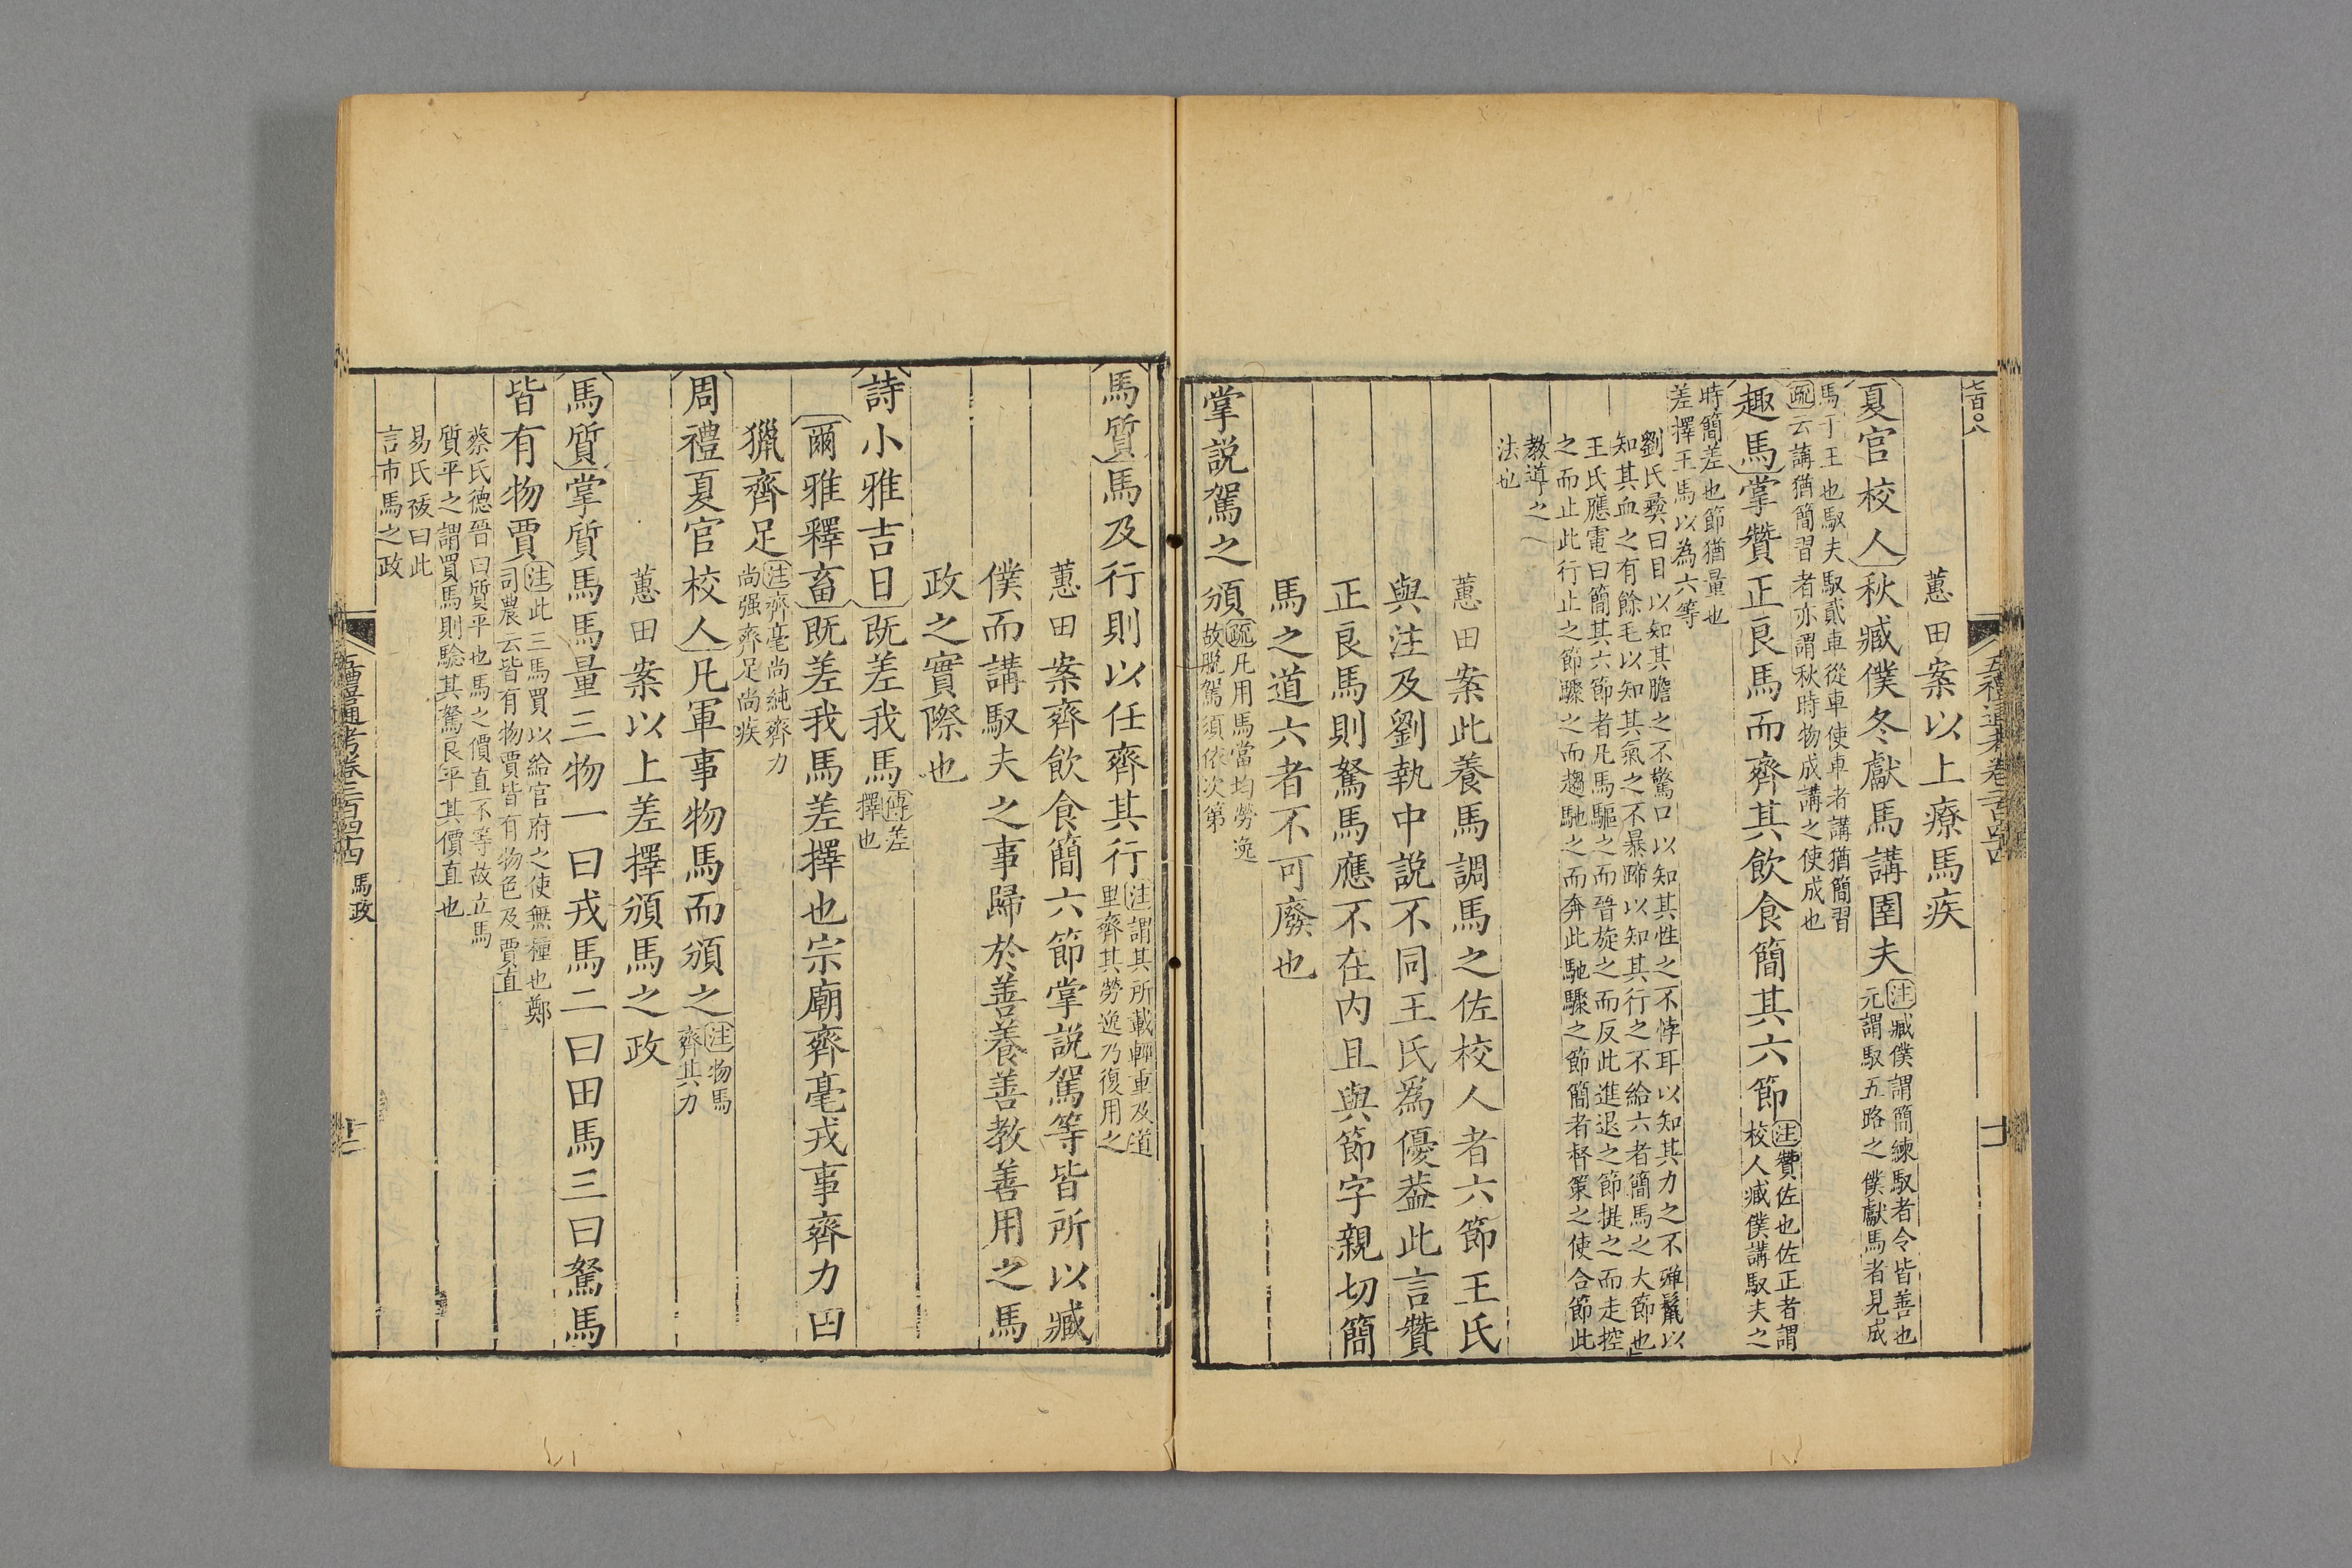 七百〇八
蕙田案以上療馬疾
夏官校人秋臧僕冬獻馬講圉夫注臧僕謂簡練馭者令皆善也
元謂馭五路之僕獻馬者見成
馬于王也馭夫馭貳車從車使車者講猶簡習
疏云講猶簡習者亦謂秋時物成講之使成也
趣馬掌贊正良馬而齊其飲食簡其六節注贊佐也佐正者謂
校人臧僕講馭夫之
時簡差也節猶量也
差擇王馬以為六等
劉氏彝曰目以知其膽之不驚口以知其性之不悖耳以知其力之不殫鬣以
知其血之有餘毛以知其氣之不暴蹄以知其行之不給六者簡馬之大節也
王氏應電曰簡其六節者凡馬驅之而晉旋之而反此進退之節提之而走控
之而止此行止之節驟之而趨馳之而奔此馳驟之節簡者督策之使合節此
教導之
法也
蕙田案此養馬調馬之佐校人者六節王氏
與注及劉執中説不同王氏爲優葢此言贊
正良馬則駑馬應不在内且與節字親切簡
馬之道六者不可廢也
掌説駕之頒疏凡用馬當均勞逸
故脱駕須依次第
馬質馬及行則以任齊其行注謂其所載輕重及道
里齊其勞逸乃復用之
蕙田案齊飲食簡六節掌説駕等皆所以臧
僕而講馭夫之事歸於善養善教善用之馬
政之實際也
詩小雅吉日既差我馬傳差
擇也
爾雅釋畜既差我馬差擇也宗廟齊毫戎事齊力田
獵齊足注齊毫尚純齊力
尚强齊足尚疾
周禮夏官校人凡軍事物馬而頒之注物馬
齊其力
蕙田案以上差擇頒馬之政
馬質掌質馬馬量三物一曰戎馬二曰田馬三曰駑馬
皆有物賈注此三馬買以給官府之使無種也鄭
司農云皆有物賈皆有物色及賈直
蔡氏德晉曰質平也馬之價直不等故立馬
質平之謂買馬則驗其駑良平其價直也
易氏祓曰此
言市馬之政
五禮通考卷二百四十四 馬政